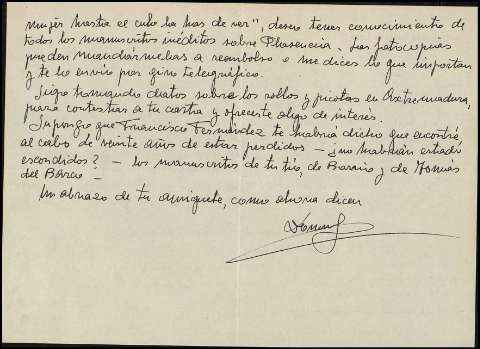 mujer hasta el culo ha has de ver", deseo tener conocimiento de
todos los manuscritos inéditos sobre Plasencia. Las fotocopias
pueden mandármelas a reembolso o me dices lo que importan
y te lo envío por giro telegráfico.
Sigo tomando datos sobre los rollos y picotas en Extremadura,
para contestar a tu carta y ofrecerte algo de interés.
Supongo que Francisco Fernández te habrá dicho que encontré,
al cabo de veinte años de estar perdidos - ¿no habrían estado
escondidos? - los manuscritos de tu tío, de Barrio y de Tomás
del Barco -
Un abrazo de tu amiguete, como ahora dicen